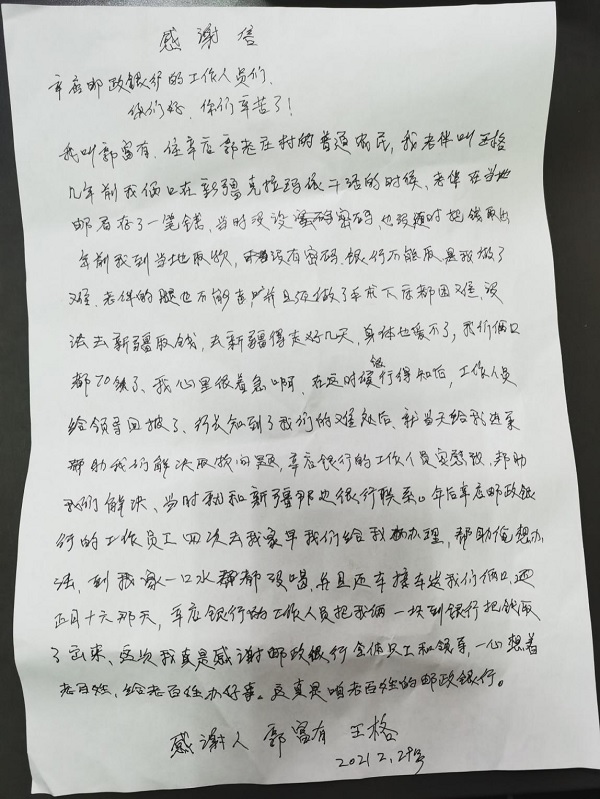 感谢信
辛店邮政银行的工作人员们.
你们好.你们辛苦了!
我叫郭富有.住辛店郭老庄村的普通农民,我老伴叫王格
几年前我俩口在新疆克拉玛依干活的时候、老伴在当地
邮局存了一笔钱,当时没设密码,也没适时把钱取出
年前我到当地取款,没有密码.银行不能取.是我做了
难.老伴的腿也不能走路并且还做了手术下床都困难,没
法去新疆取钱,去新疆得走好几天,身体也受不了,我们俩口
都70多了、我心里很着急啊,在这时候银行得知后,工作人员
给领导回报了、行长知到了我们的难处后,就当天给我进来
帮助我们解决取款问题,辛店银行的工作人员实憨致.帮助
我们解决、当时就和新疆那边银行联系。年后辛店邮政银
行的工作员工四次去我家早我们给我办理,帮助俺想办
法,到我家一口水都没喝,并且还车接车送我们俩口,还
正月十六那天,辛店银行的工作人员把我俩一块到银行把钱取
了出来、这次我真是感谢邮政银行全体员工和领导,一心想着
老百姓,给老百姓办好事。这真是咱老百姓的邮政银行。
感谢人 郭富有 王格
2021.2,28号